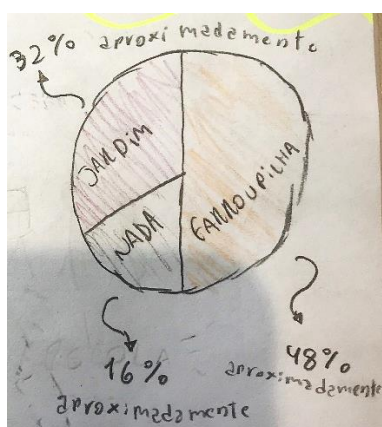 32% aproximadamente
JARDIM
NADA
GARROUPILHA
16%
aproximadamente
48%
aproximadamente